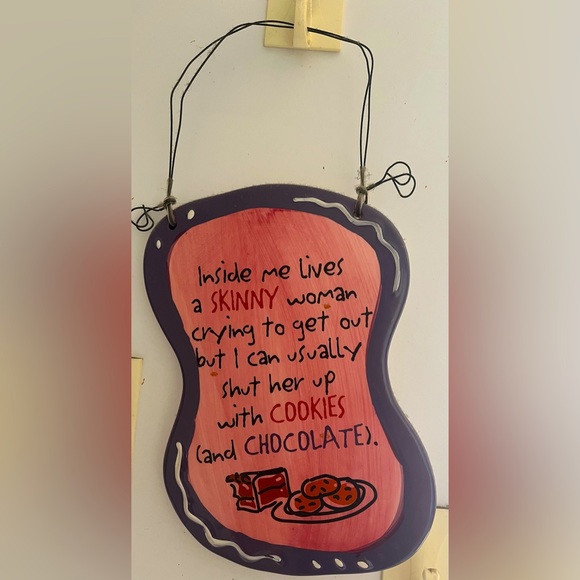 Inside me lives
a SKINNY woman
crying to get out
but I can usually
shut her up
with COOKIES
(and CHOCOLATE).